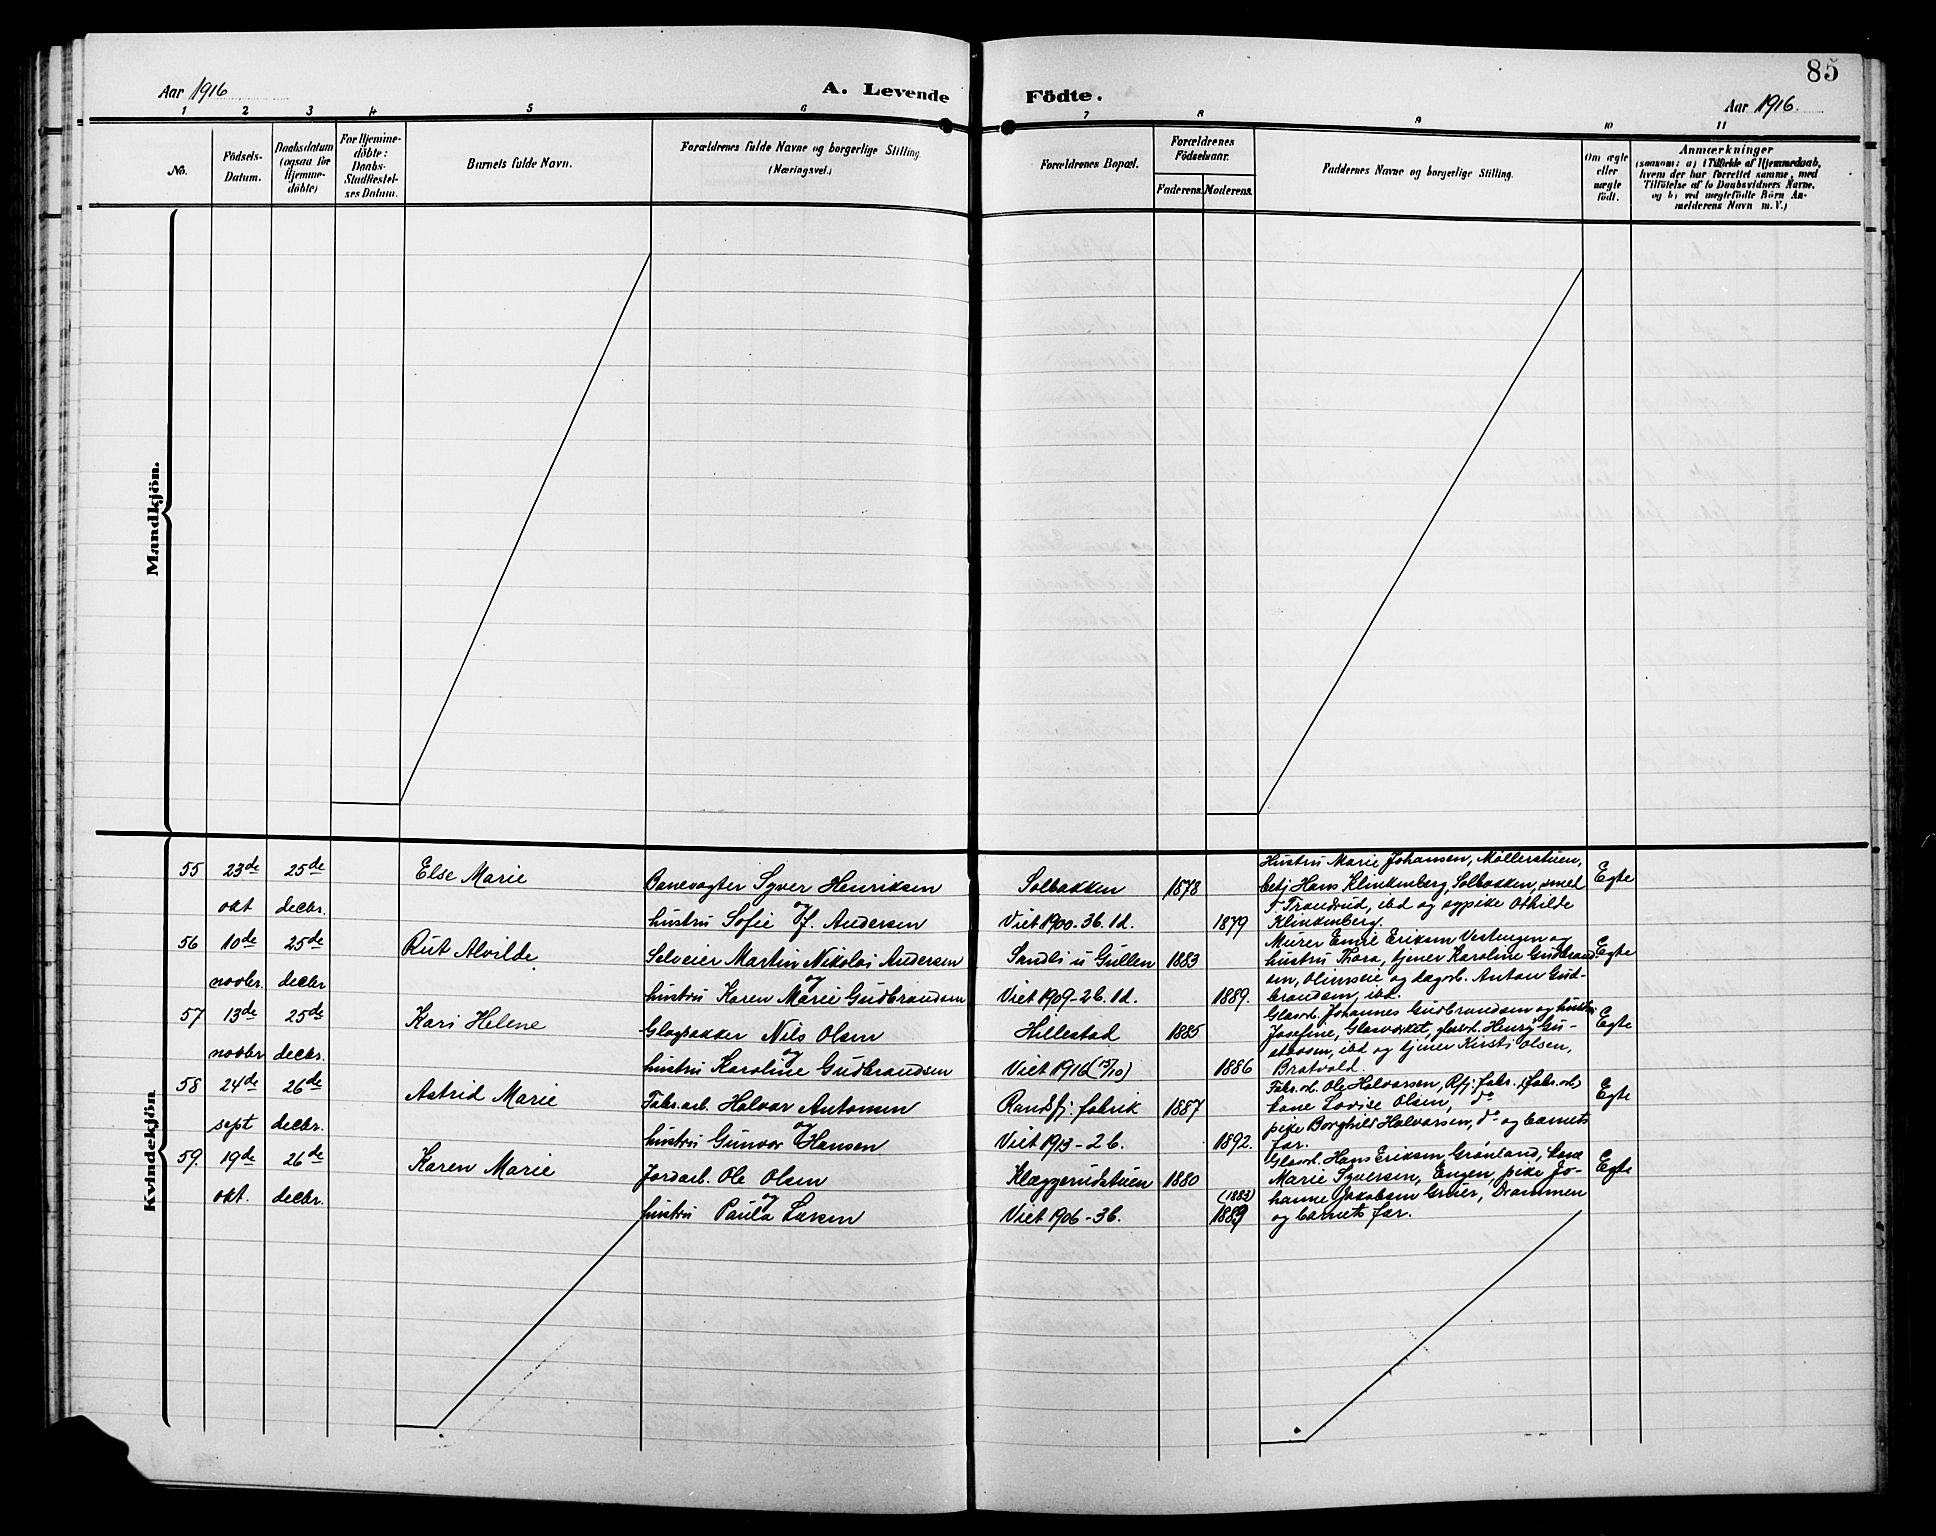 85
Aar 1916
A. Levende Födte.
Aar 1916.
1 2 3 4 5 6 7 8 9 10 11
No.
Födsels-
Datum.
Daabsdatum
(ogsaa for
Hjemme-
döbte)
For Hjemme-
döbte:
Daabs-
Stadfæstel-
ses Datum.
Barnets fulde Navn.
Forældrenes fulde Navne og borgerlige Stilling
(Næringsvei.)
Forældrenes Bopæl.
Forældrenes
Födselsaar.
Faderens. Moderens.
Faddernes Navne og borgerlige Stilling.
Om ægte
eller
uægte
födt.
Anmærkninger
(saasom: a) i Tilfælde af Hjemmedaab,
hvem der har forrettet samme, med
Tilföielse af to Daabsvidners Navne,
og b) ved uægtefödte Börn An-
melderens Navn m. V.)
Mandkjön.
Kvindekjön
55 23de okt
25de decbr.
Else Marie
Banevogter Syver Henriksen
og
hustru Sofie f. Andersen
Solbakken
Viet 1900-3b. 1d.
1878
1879
Hustru Marie Johansen, Møllerstuen,
betj Hans Klinkenberg, Solbakken, smed
T Trandrud, ibd og sypike Othilde
Klinkenberg.
Egte
56 10de novbr.
25de decbr
Rut Alvilde
Selveier Martin Nikolai Andersen
og
hustru Karen Marie Gudbrandsen
Sandli u Gullen
Viet 1909-2b. 1d.
1883
1889.
Murer Emil Eriksen Vestengen og
hustru Thora, tjener Karoline Gudbrand
sen, Olimseie og dagarb. Anton Gud-
brandsen, ibd.
Egte
57 13de novbr
25de decbr.
Kari Helene
Glaspakker Nils Olsen
og
hustru Karoline Gudbrandsen
Hillestad
Viet 1916 (15/10)
1885
1886
Glasarb. Johannes Gudbrandsen og hustru
Josefine, Glasværket, glasarb. Henry Gu-
stavsen, ibd og tjener Kirsti Olsen,
Bratvold.
Egte
58 24de sept
26de decbr.
Astrid Marie
Fabr.arb. Halvor Antonsen
og
hustru Gunvor Hansen
Randsfj. fabrik
Viet 1913-2b.
1887
1892.
Fabr.arb. Ole Halvorsen, Rfj. fabr. (fabr.arb)
Lovise Olsen, do
pike Borghild Halvorsen, do og barnets
far.
Egte
59. 19de okt.
26de decbr.
Karen Marie
Jordarb. Ole Olsen
og
hustru Paula Larsen
Klæggerudstuen
Viet 1906-3b.
1880
(1883)
1889
Glasarb. Hans Eriksen Grønland, kone
Marie Syversen, Engen, pike Jo-
hanne Jakobsen Greier, Drammen
og barnets far.
Egte